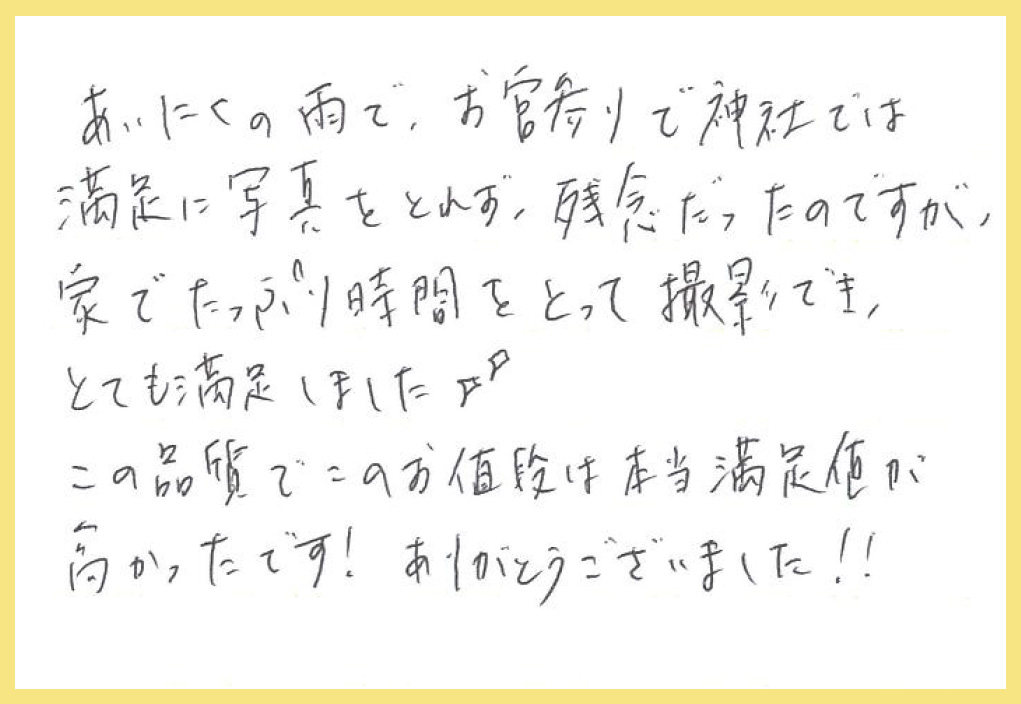 あいにくの雨で、お宮参りで神社では
満足に写真をとれず、残念だったのですが、
家でたっぷり時間をとって撮影でき、
とても満足しました♪♪
この品質でこのお値段は本当満足値が
高かったです! ありがとうございました!!